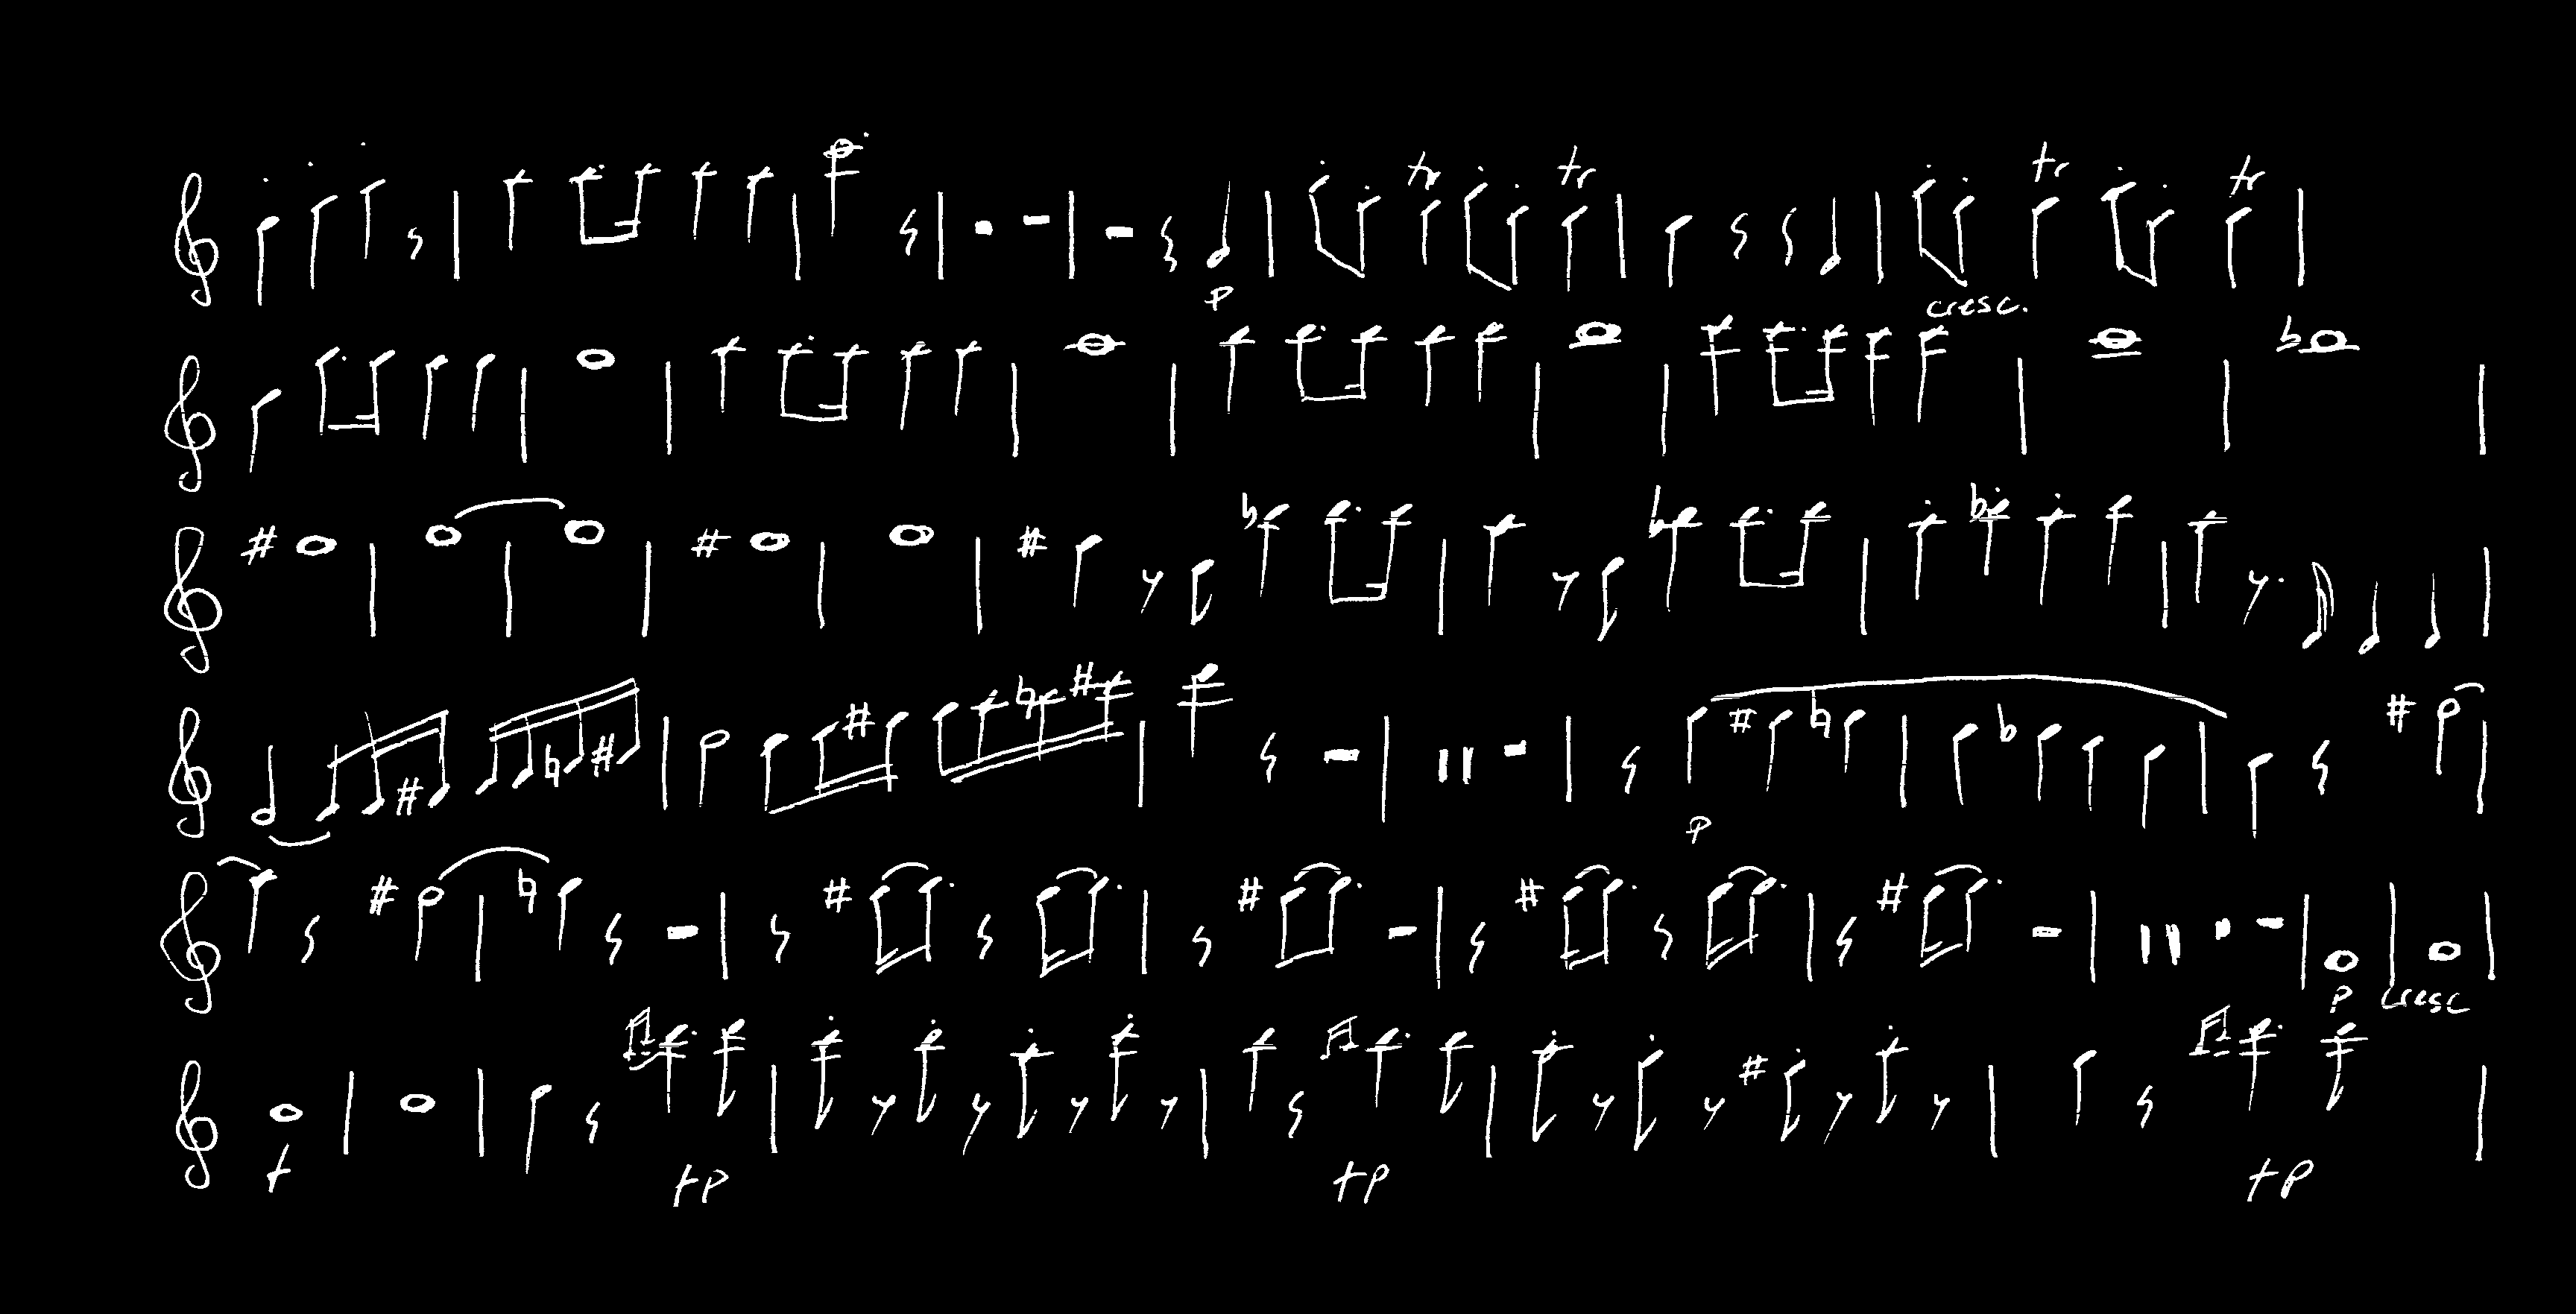 tr tr tr tr
p cresc.
p
p cresc
f fp fp fp